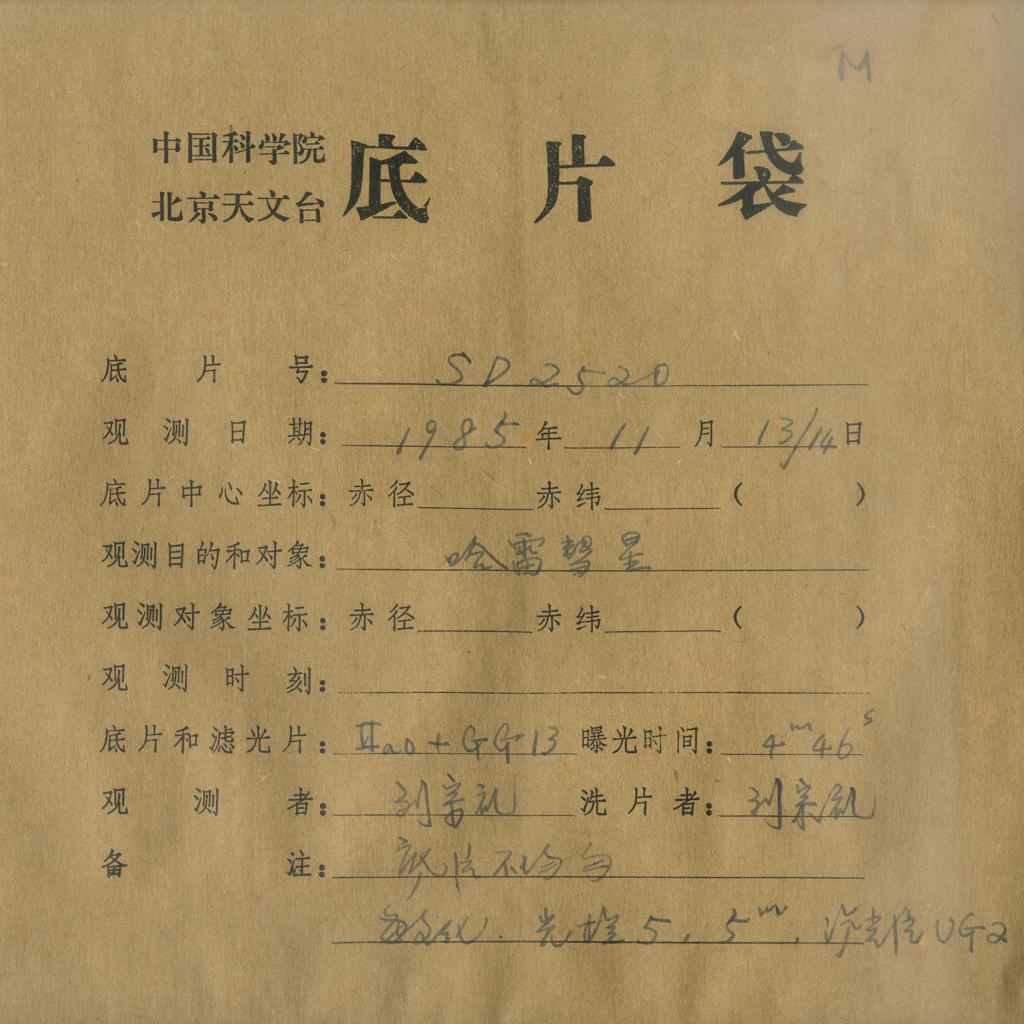 M
中国科学院
北京天文台
底片袋
底片号：SD 2520
观测日期：1985年11月13/14日
底片中心坐标：赤径 赤纬 （ ）
观测目的和对象：哈雷彗星
观测对象坐标：赤径 赤纬 （ ）
观测时刻：
底片和滤光片：IIaO+GG13 曝光时间：4m46s
观测者：刘宗礼 洗片者：刘宗礼
备注：底片不均匀
敏化. 光楔5, 5m, 滤光片UG2